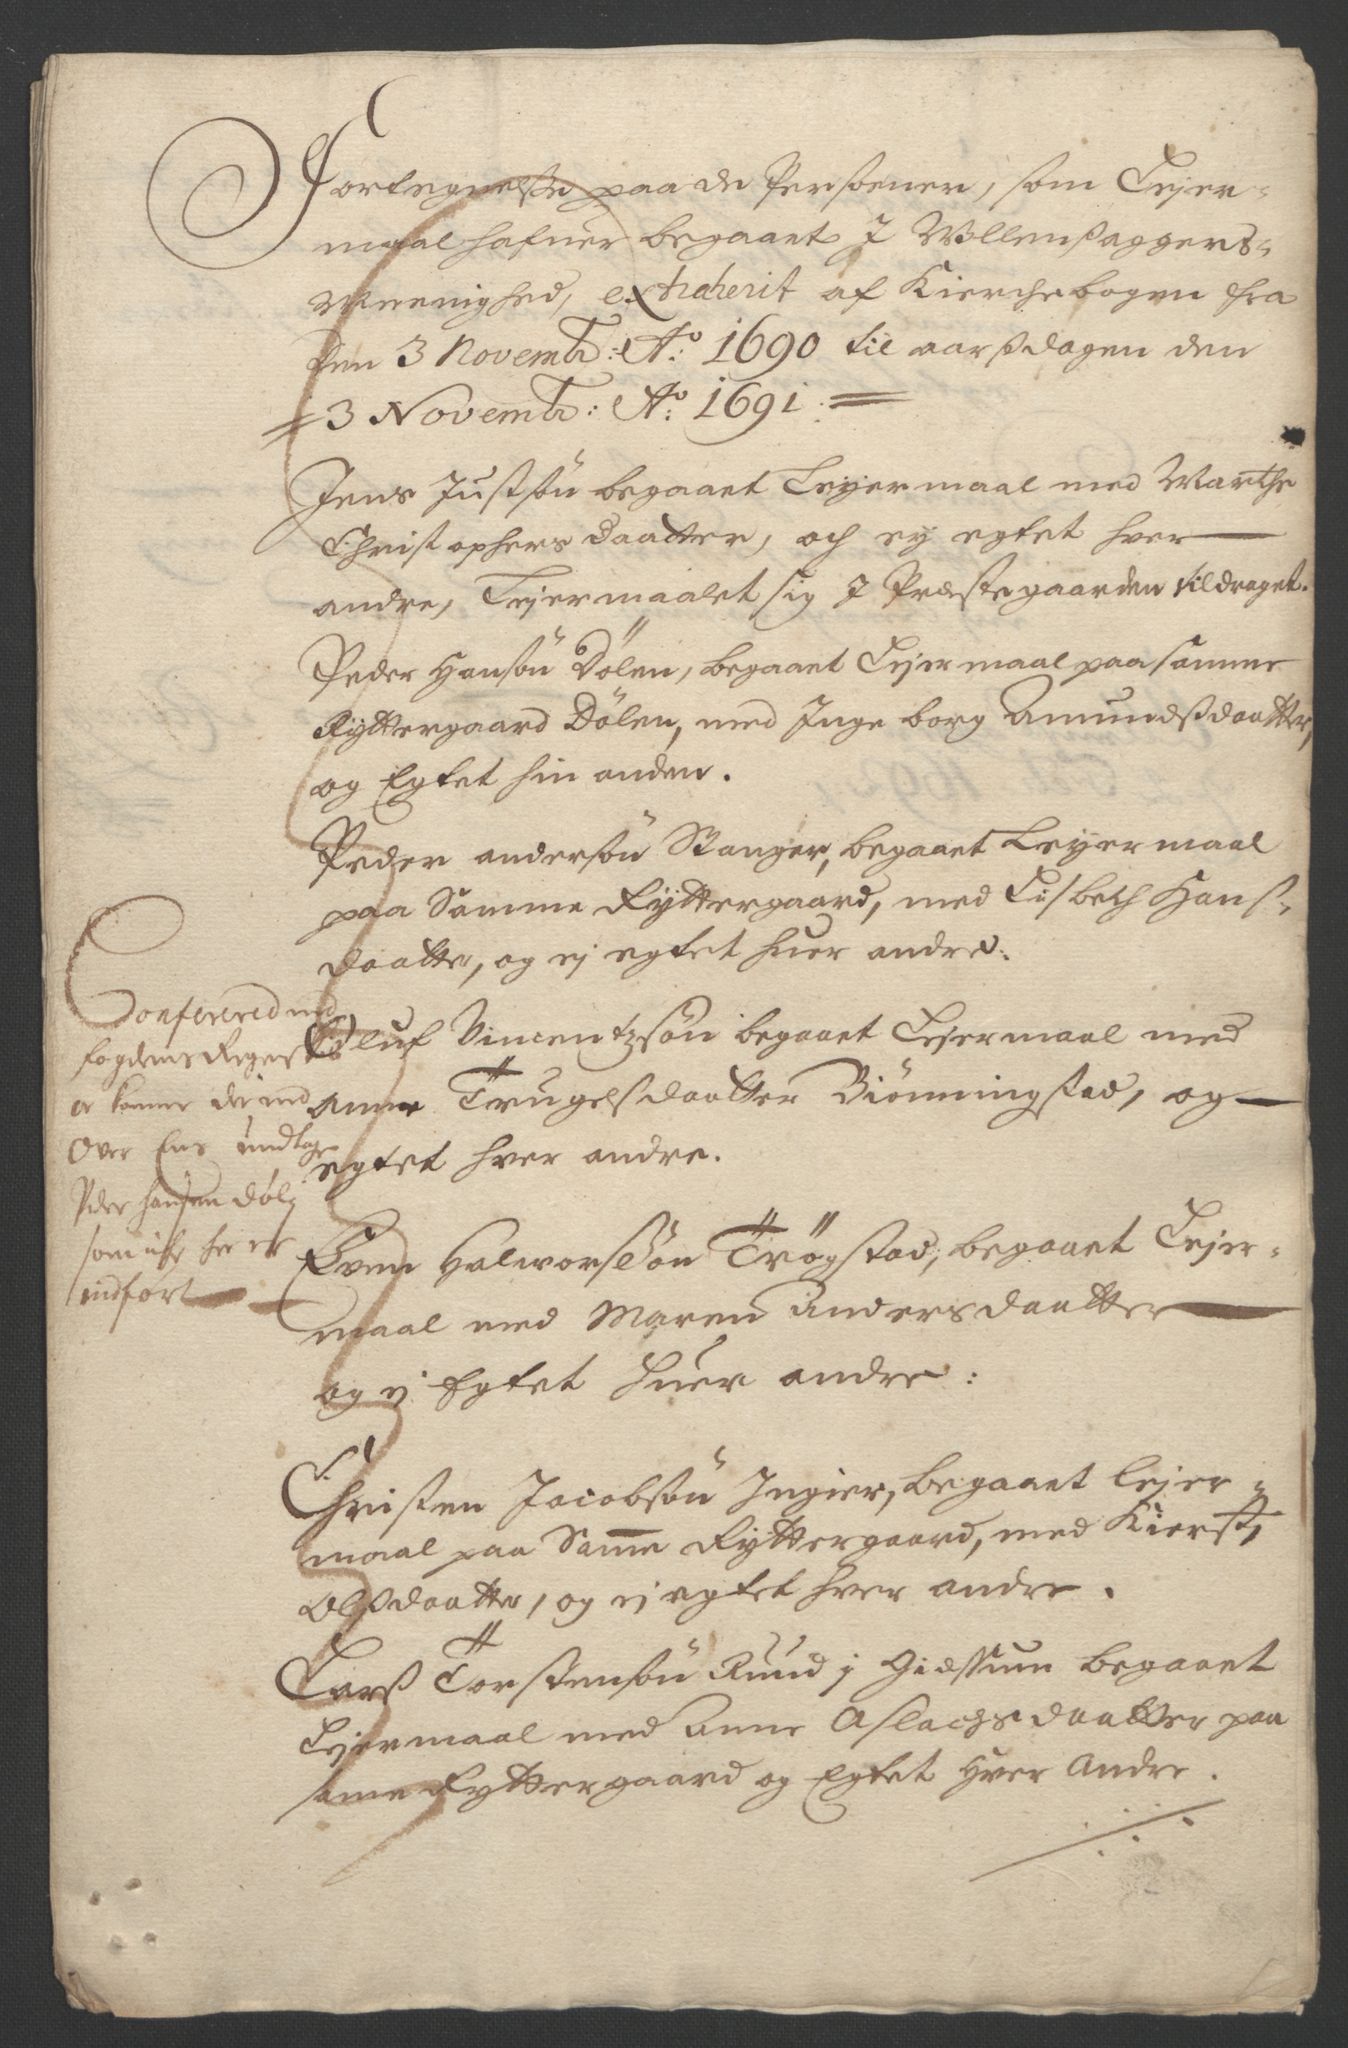 Fortegnelsse paa de Persoener, som Lejer-
maal hafuer begaaet J Wllensaggers-
Meenighed, extraherit af Kierchebogen fra
den 3 Novembr: Ao: 1690 til aarsdagen den
3 Novembr: Ao: 1691.
Jens Justsøn begaaet Leyermaal med Marthe
Christophers daatter, och ey egtet hver
andre, Lejermaalet sig J Præstegaarden tildraget.
Peder Hansøn Dølen, begaaet Lejermaal paa samme
Ryttergaard Dølen, med Inge borg Amundsdaatter,
og Egtet hin anden.
Peder andersøn Stanger, begaaet Leyermaal
paa Samme Ryttergaard, med Lisbeth Hans-
daatter, og ej egtet huer andre.
Oluf Vincentzsøn begaaet Lejermaal med
Anne Trugelsdaatter Biønningstad, og
egtet hver andre.
Even Halworssøn Trøgstad, begaaet Lejer-
maal med Maren Andersdaatter
og ej Egtet huer andre:
Christen Jacobsøn Ingier, begaaet lejer-
maal paa Samme Ryttergaard, med Kierst,
Olsdaatter, og ej egtet hver andre.
Lars Torstensøn Ruud j Giessum begaaet
Lejermaal med Anne Aslachsdaatter paa
samme Ryttergaard og Egtet hver Andre.
Confererid med
fogdens Register
er komme de med
Over Ens undtage
Peder hansen Døl:
som icke her er
indført